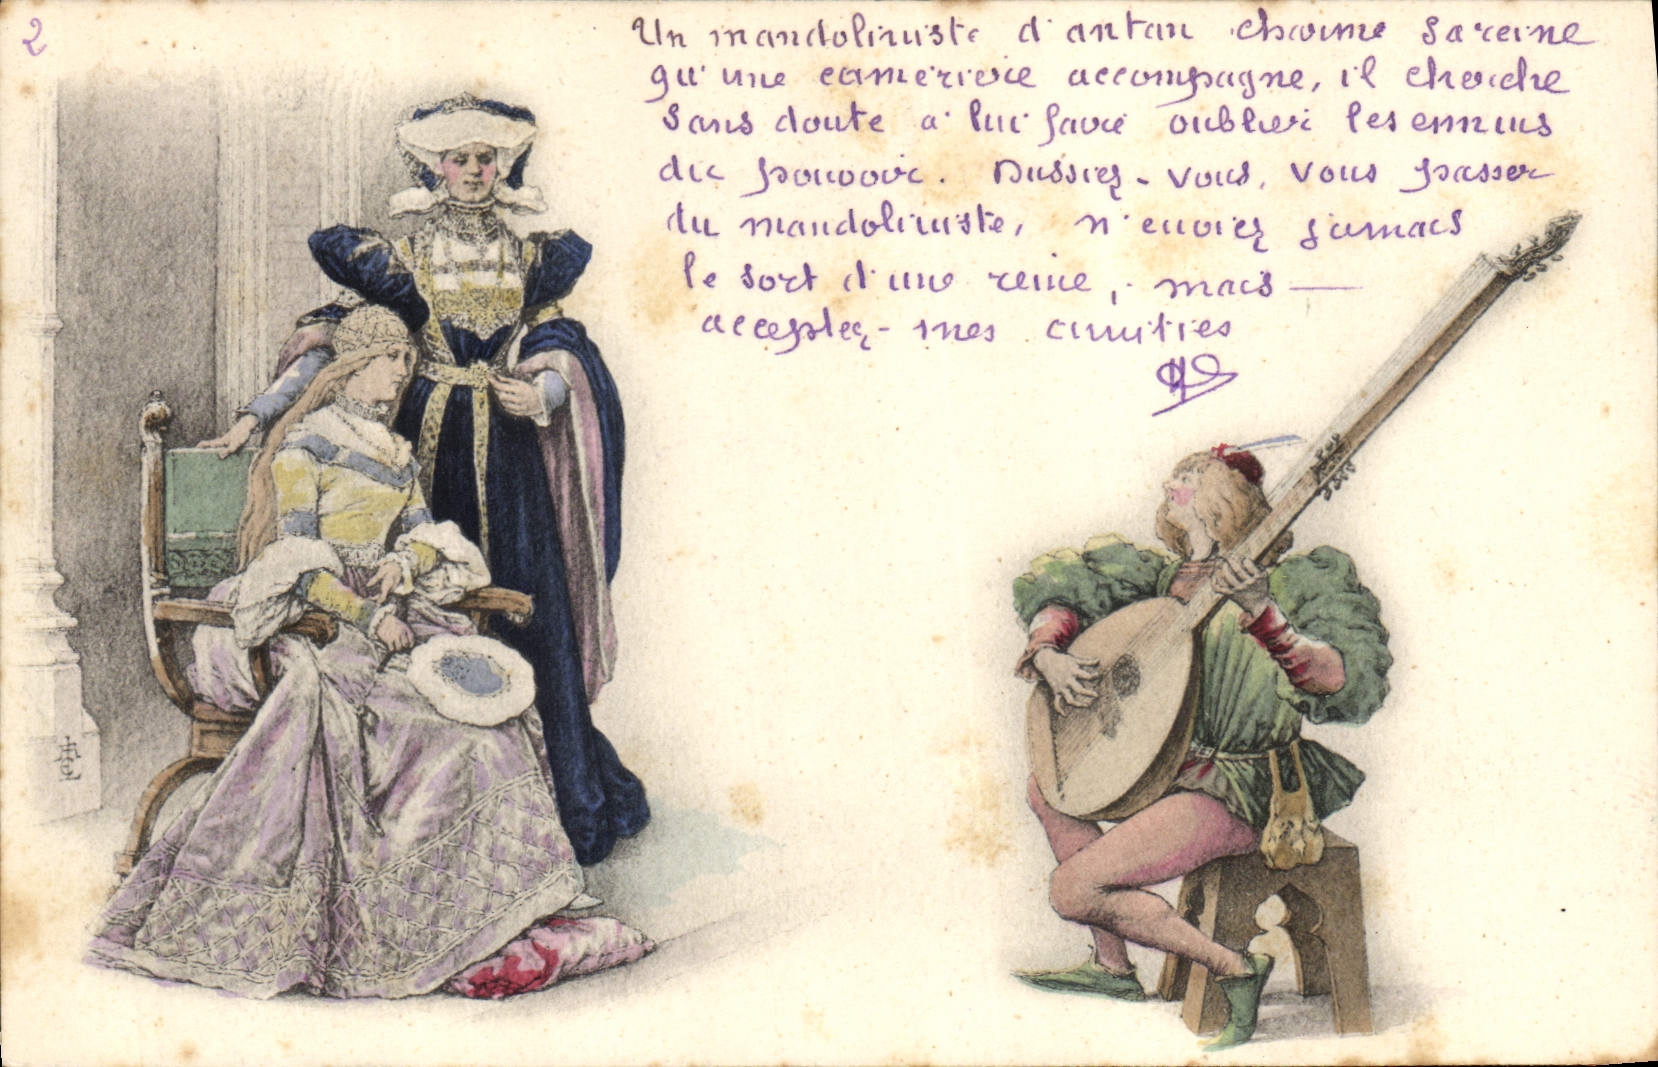 2
Un mandoliniste d'antan charme sa reine
qu'une camérière accompagne, il cherche
sans doute à lui faire oublier les ennuis
du pouvoir. Dussiez-vous, vous passer
du mandoliniste, n'enviez jamais
le sort d'une reine, mais —
acceptez-mes amitiés